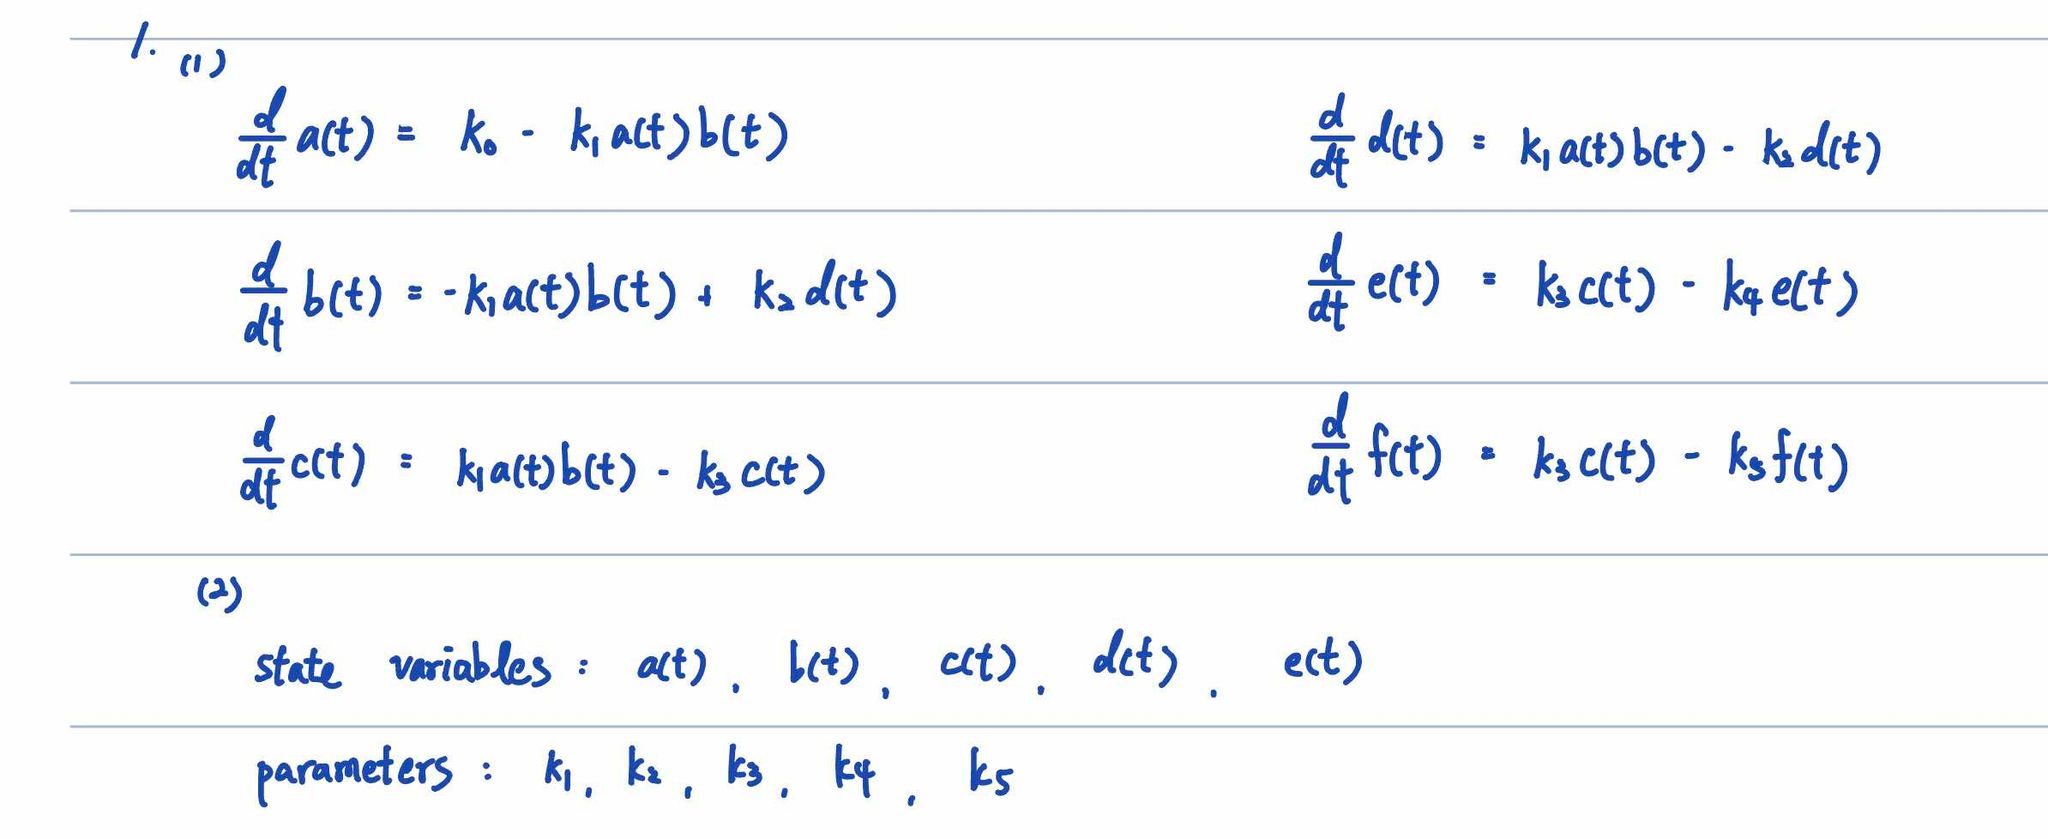 1. (1)
d/dt a(t) = k₀ - k₁a(t)b(t)
d/dt d(t) = k₁a(t)b(t) - k₂d(t)
d/dt b(t) = -k₁a(t)b(t) + k₂d(t)
d/dt e(t) = k₃c(t) - k₄e(t)
d/dt c(t) = k₁a(t)b(t) - k₃c(t)
d/dt f(t) = k₃c(t) - k₅f(t)
(2)
state variables : a(t), b(t), c(t), d(t), e(t)
parameters : k₁, k₂, k₃, k₄, k₅